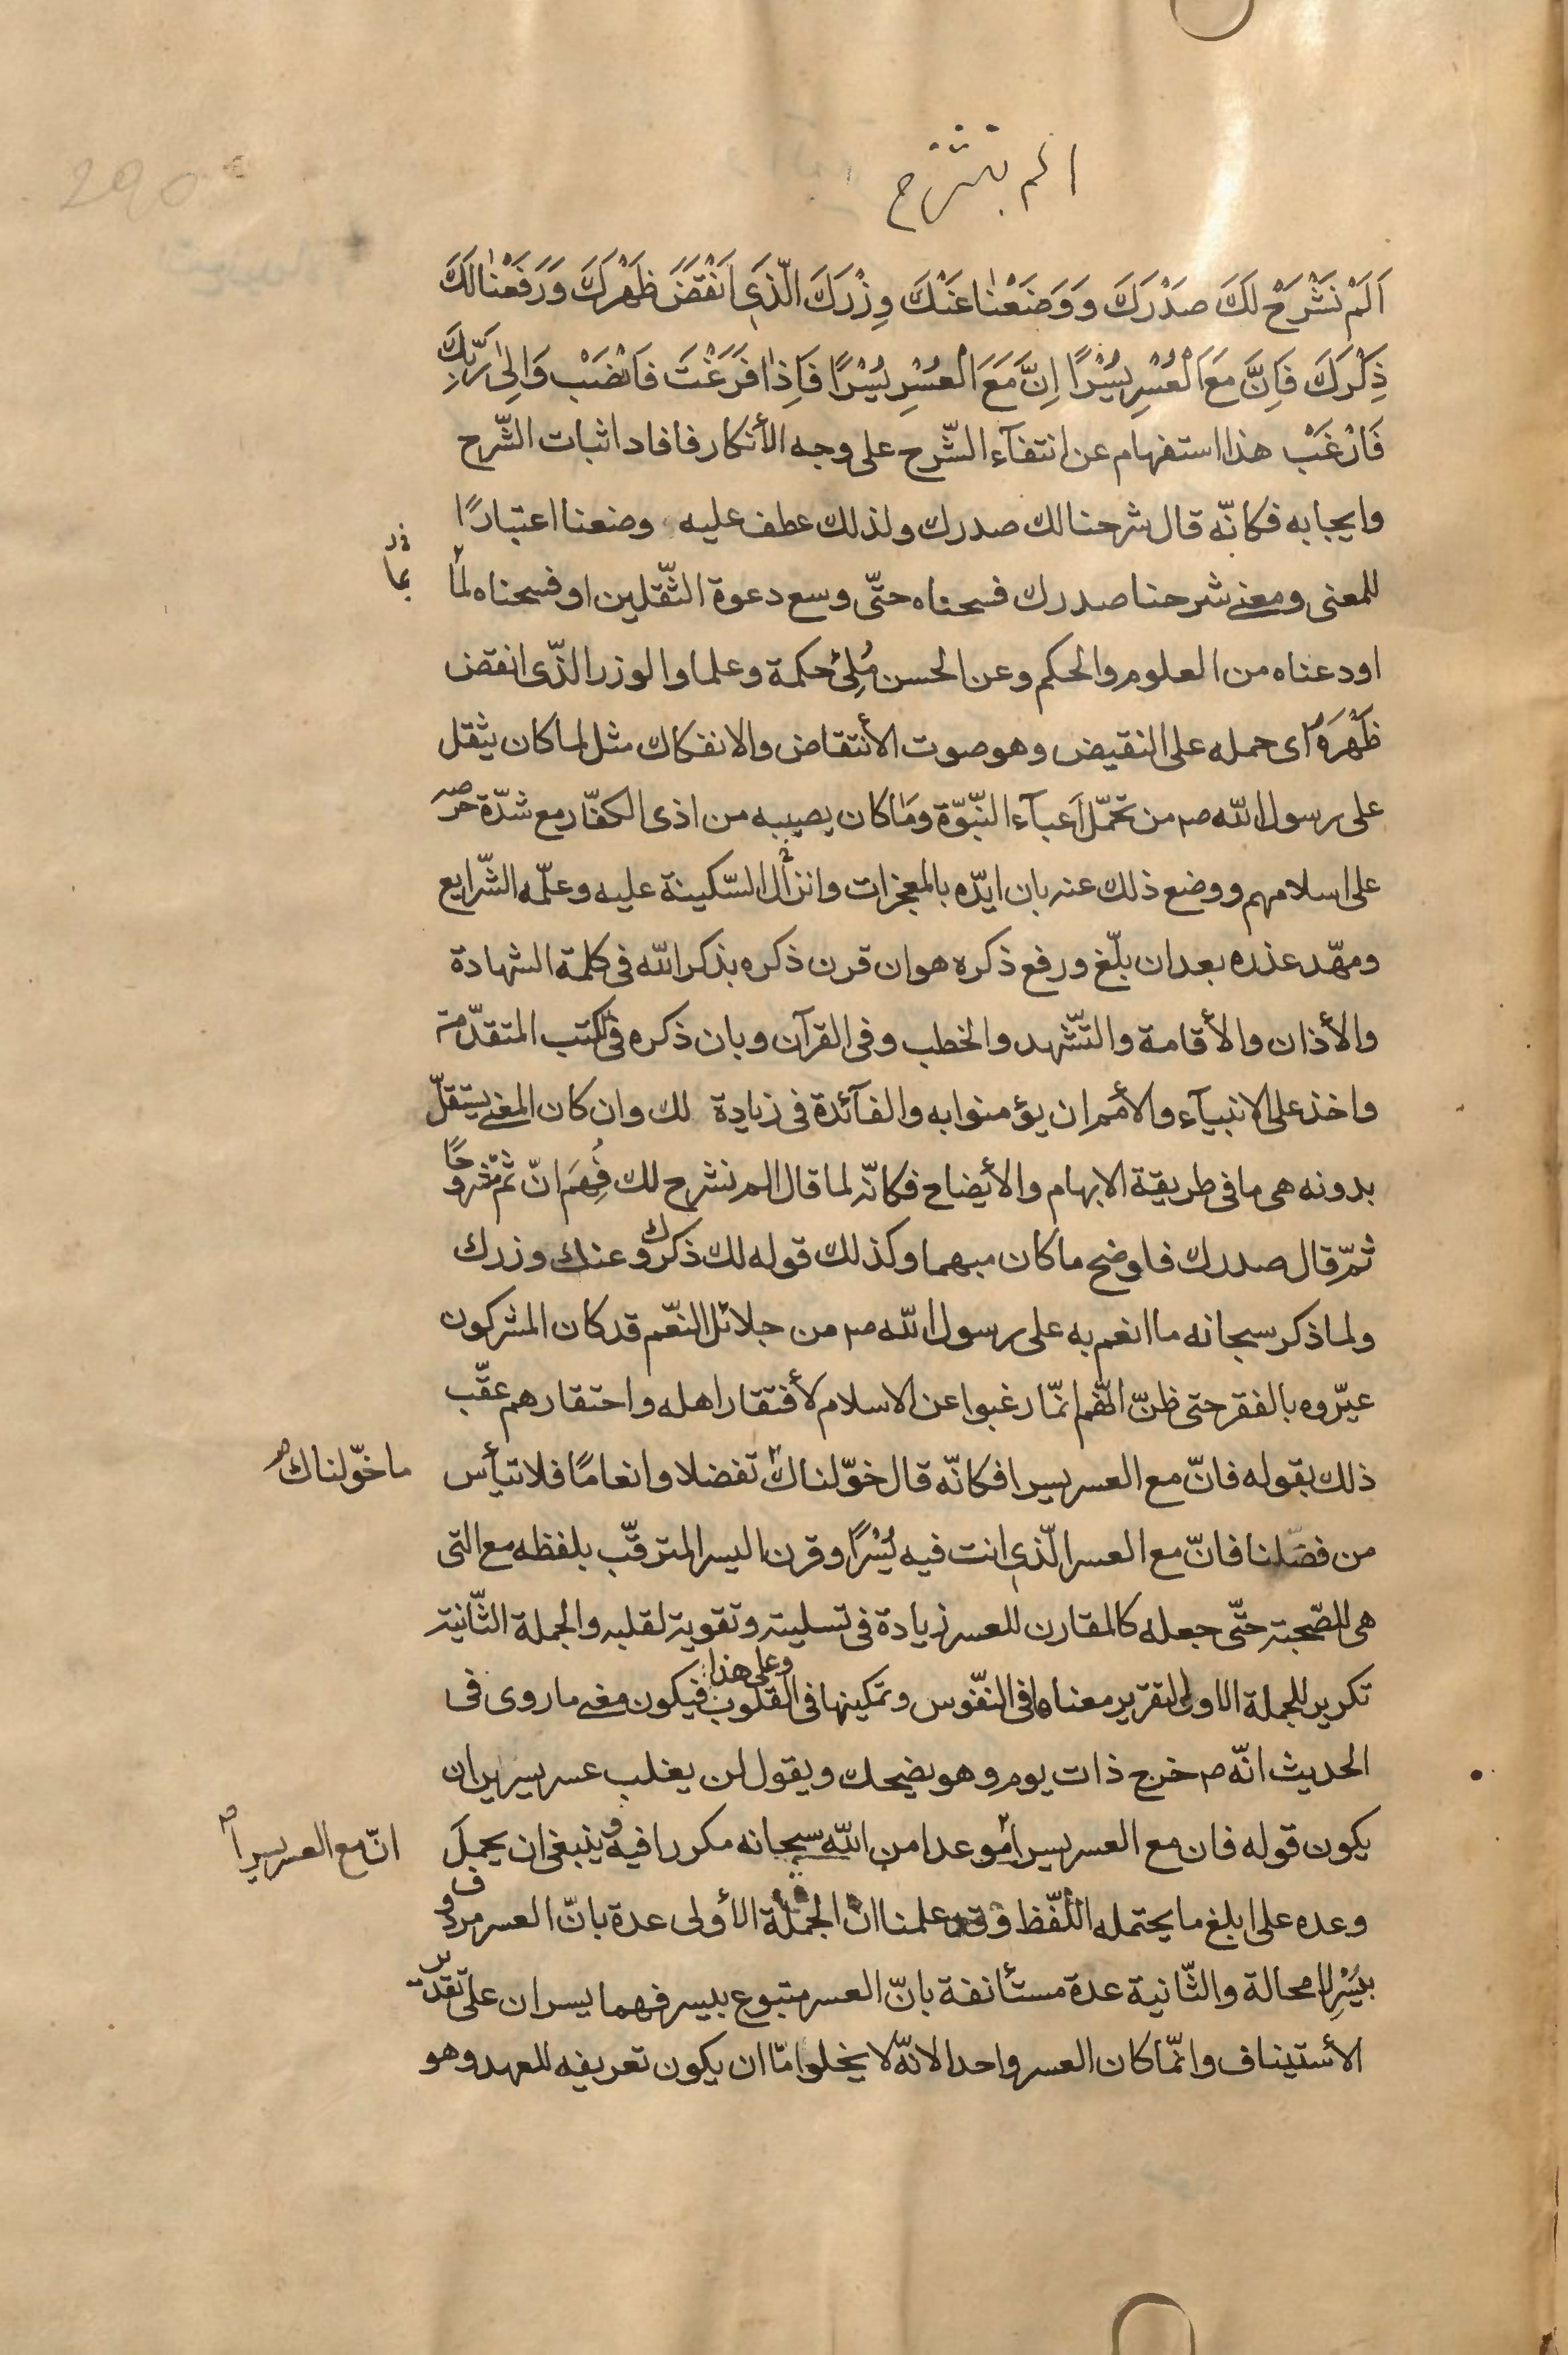 الم نشرح
290
اَلَمْ نَشْرَحْ لَكَ صَدْرَكَ وَوَضَعْنٰا عَنْكَ وِزْرَكَ الَّذٖي اَنْقَضَ ظَهْرَكَ وَرَفَعْنٰا لَكَ
ذِكْرَكَ فَاِنَّ مَعَ الْعُسْرِ يُسْرًا اِنَّ مَعَ الْعُسْرِ يُسْرًا فَاِذٰا فَرَغْتَ فَانْصَبْ وَاِلىٰ رَبِّكَ
فَارْغَبْ هذا استفهام عن انتفآء الشّرح على وجه الأنكار فافاد اثبات الشّرح
وايجابه فكانّه قال شرحنا لك صدرك ولذلك عطف عليه وضعنا اعتبارًا
للمعنى ومعنى شرحنا صدرك فسحناه حتّى وسع دعوة الثّقلين او فسحناه لما
بما
اودعناه من العلوم والحكم وعن الحسن مُلِئَ حكمة وعلما والوزر الّذى انقض
ظَهْرَهُ اى حمله على النقيض وهو صوت الأنتقاض والانفكاك مثل لما كان يثقل
على رسول الله صم من تحمّل اَعبآء النّبّوّة وَمَا كان يصيبه من اذى الكفّار مع شدّة حرصه
على اسلامهم ووضع ذلك عنه بان ايّده بالمعجزات وانزال السّكينة عليه وعلّمه الشّرايع
ومهّد عذره بعد ان بلّغ ورفع ذكره هو ان قرن ذكره بذكر الله فى كلمة الشهادة
والأذان والأقامة والتّشهد والخطب وفى القرآن وبان ذكره فى الكتب المتقدّمة
واخذ على الانبيآء والأمم ان يؤمنوا به والفآئدة فى زيادة لك وان كان المعنى يستقلّ
بدونه هى ما فى طريقة الابهام والأيضاح فكانّه لما قال الم نشرح لك فُهِمَ انّ ثم مشروحًا
ثمّ قال صدرك فاوضح ما كان مبهما وكذلك قوله لك ذكرك وعنك وزرك
ولما ذكر سبحانه ما انعم به على رسول الله صم من جلائل النعّم قد كان المشركون
عيّروه بالفقر حتى ظنّ انّهم انّما رغبوا عن الاسلام لأفتقار اهله واحتقارهم عقّب
ذلك بقوله فانّ مع العسر يسرا فكانّه قال خوّلناك تفضلا وانعامًا فلا تيأس
ما خوّلناك
من فضلنا فانّ مع العسر الّذى انت فيه يُسْرًا وقرن اليسر المترقّب بلفظه مع التى
هى للصّحبة حتّى جعله كالمقارن للعسر زيادة فى تسليته وتقوية لقلبه والجملة الثّانية
تكرير للجملة الاولى لتقرير معناها فى النفّوس وتمكينها فى القلوب وعلى هذا فيكون معنى ما روى فى
الحديث انّه صم خرج ذات يوم وهو يضحك ويقول لن يغلب عسر يسرين ان
يكون قوله فان مع العسر يسرا موعدا من الله سبحانه مكررا فيه وينبغى ان يحمل
انّ مع العسر يسراً
وعده على ابلغ ما يحتمله اللّفظ وقد علمنا انّ الجملة الأولى عدة بانّ العسر مردوف
بيُسْرٍ لا محالة والثّانية عدة مستأنفة بانّ العسر متبوع بيسر فهما يسران على تقدير
الأستيناف وانّما كان العسر واحدا لانّه لا يخلوا مّا ان يكون تعريفه للعهد وهو